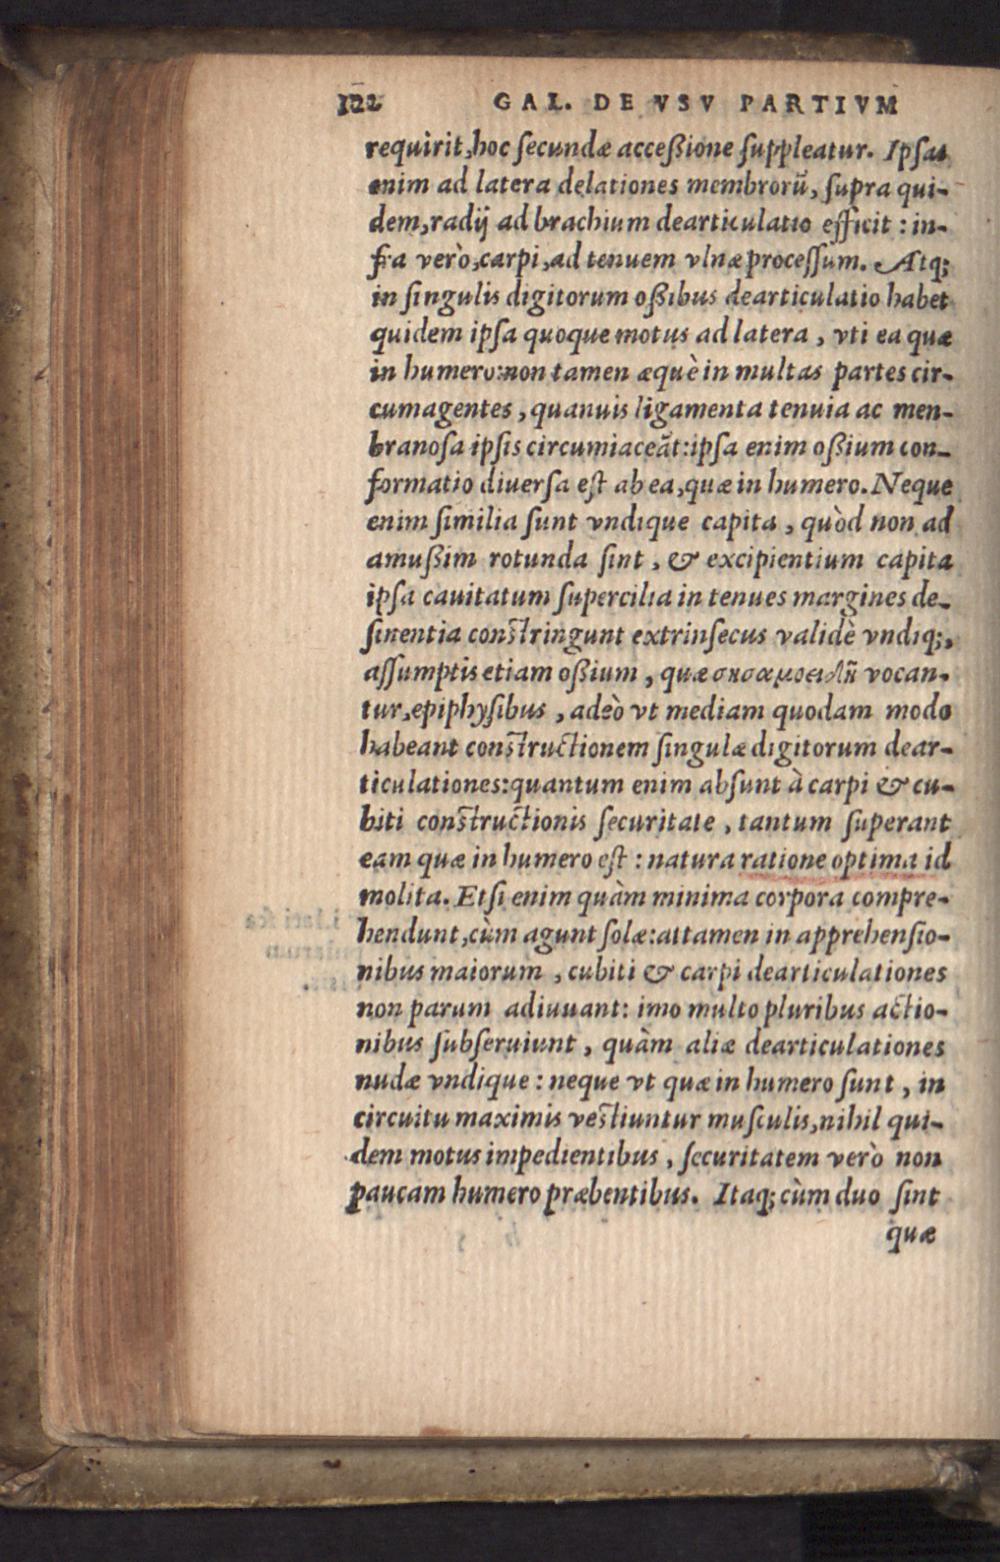 122 GAL. DE VSV PARTIVM
requirit, hoc ſecundæ acceßione ſuppleatur. Ipſas
enim ad latera delationes membrorũ, ſupra qui-
dem, radij ad brachium dearticulatio efficit: in-
fra verò, carpi, ad tenuem vlnæ proceſſum. Atq;
in ſingulis digitorum oßibus dearticulatio habet
quidem ipſa quoque motus ad latera, vti ea quæ
in humero: non tamen æquè in multas partes cir-
cumagentes, quanuis ligamenta tenuia ac men-
branoſa ipſis circumiaceāt: ipſa enim oßium con-
formatio diuerſa eſt ab ea, quæ in humero. Neque
enim ſimilia ſunt vndique capita, quòd non ad
amußim rotunda ſint, & excipientium capita
ipſa cauitatum ſupercilia in tenues margines de-
ſinentia conſtringunt extrinſecus validè vndiq;,
aſſumptis etiam oßium, quæ σησαμοειδῆ vocan-
tur, epiphyſibus, adeò vt mediam quodam modo
habeant conſtructionem ſingulæ digitorum dear-
ticulationes: quantum enim abſunt à carpi & cu-
biti conſtructionis ſecuritate, tantum ſuperant
eam quæ in humero eſt: natura ratione optima id
molita. Etſi enim quàm minima corpora compre-
hendunt, cùm agunt ſolæ: attamen in apprehenſio-
nibus maiorum, cubiti & carpi dearticulationes
non parum adiuuant: imo multo pluribus actio-
nibus ſubſeruiunt, quàm aliæ dearticulationes
nudæ vndique: neque vt quæ in humero ſunt, in
circuitu maximis veſtiuntur muſculis, nihil qui-
dem motus impedientibus, ſecuritatem verò non
paucam humero præbentibus. Itaq; cùm duo ſint
quæ